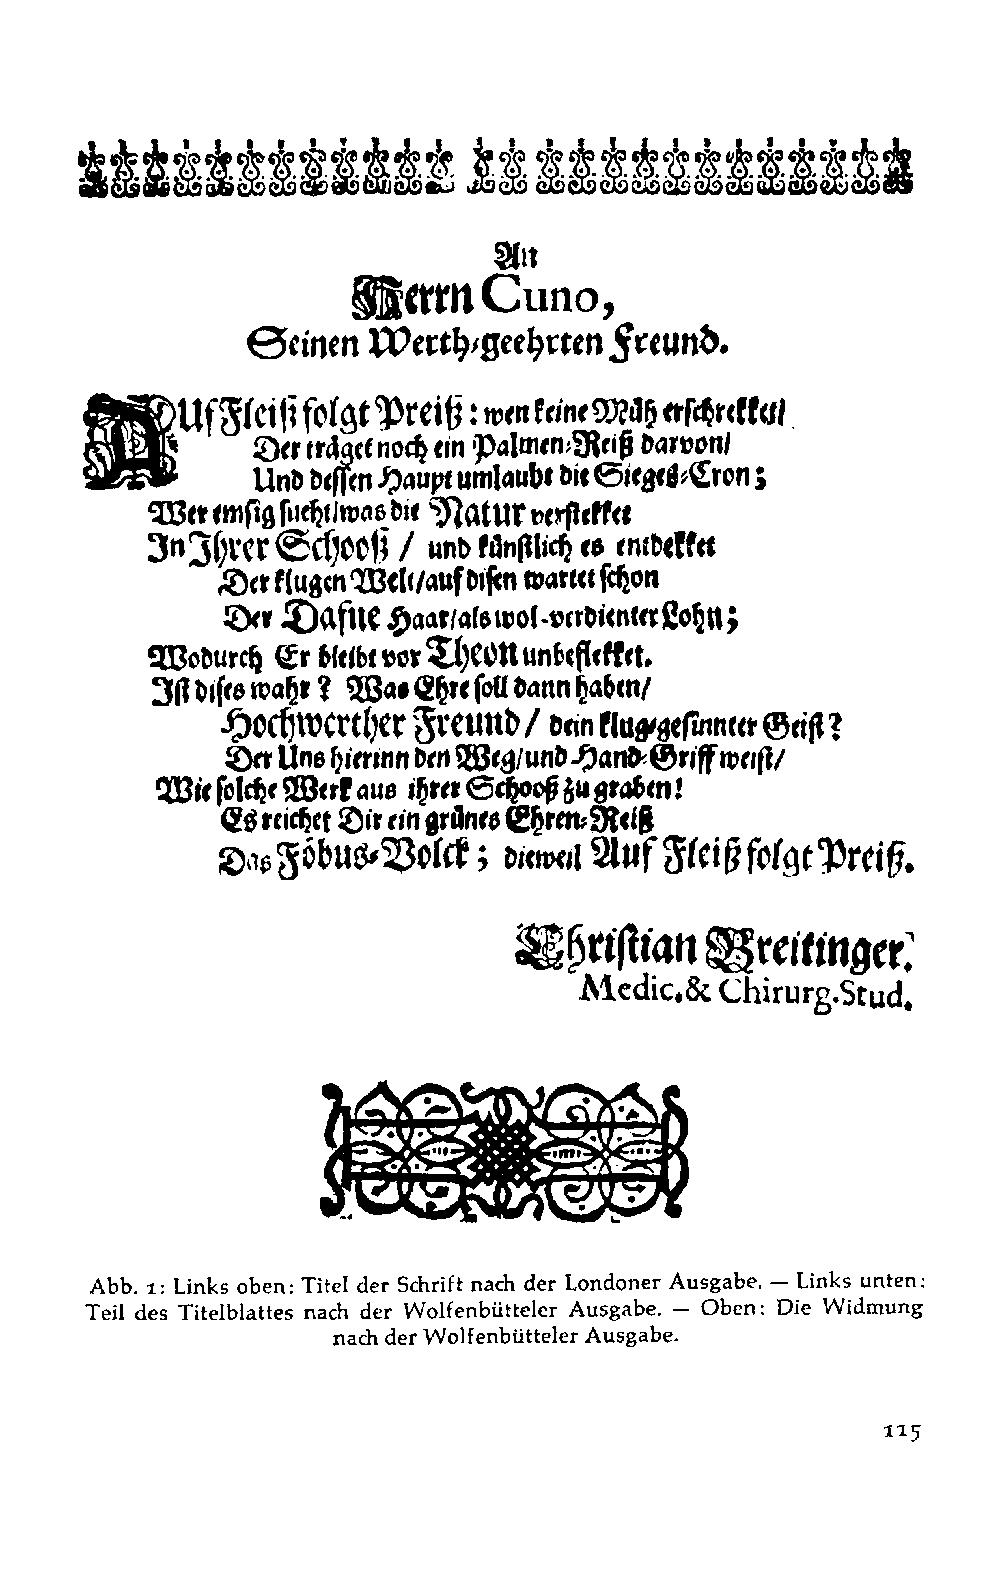 An
Herrn Cuno,
Seinen Werth-geehrten Freund.
AUf Fleiß folgt Preiß: wen keine Müh erschrekket/
Der träget noch ein Palmen-Reiß darvon/
Und dessen Haupt umlaubt die Sieges-Cron;
Wer emsig sucht/was die Natur verstekket
In Ihrer Schooß / und künstlich es entdekket
Der klugen Welt/auf disen wartet schon
Der Dafne Haar/als wol-verdienter Lohn;
Wodurch Er bleibt vor Theon unbeflekket.
Ist dises wahr? Was Ehre soll dann haben/
Hochwerther Freund/ dein klug-gesinnter Geist?
Der Uns hierinn den Weg/und Hand-Griff weist/
Wie solche Werk aus ihrer Schooß zu graben!
Es reichet Dir ein grünes Ehren-Reiß
Das Föbus-Volck; dieweil Auf Fleiß folgt Preiß.
Christian Breitinger.
Medic.& Chirurg.Stud.
Abb. 1: Links oben: Titel der Schrift nach der Londoner Ausgabe. — Links unten:
Teil des Titelblattes nach der Wolfenbütteler Ausgabe. — Oben: Die Widmung
nach der Wolfenbütteler Ausgabe.
115